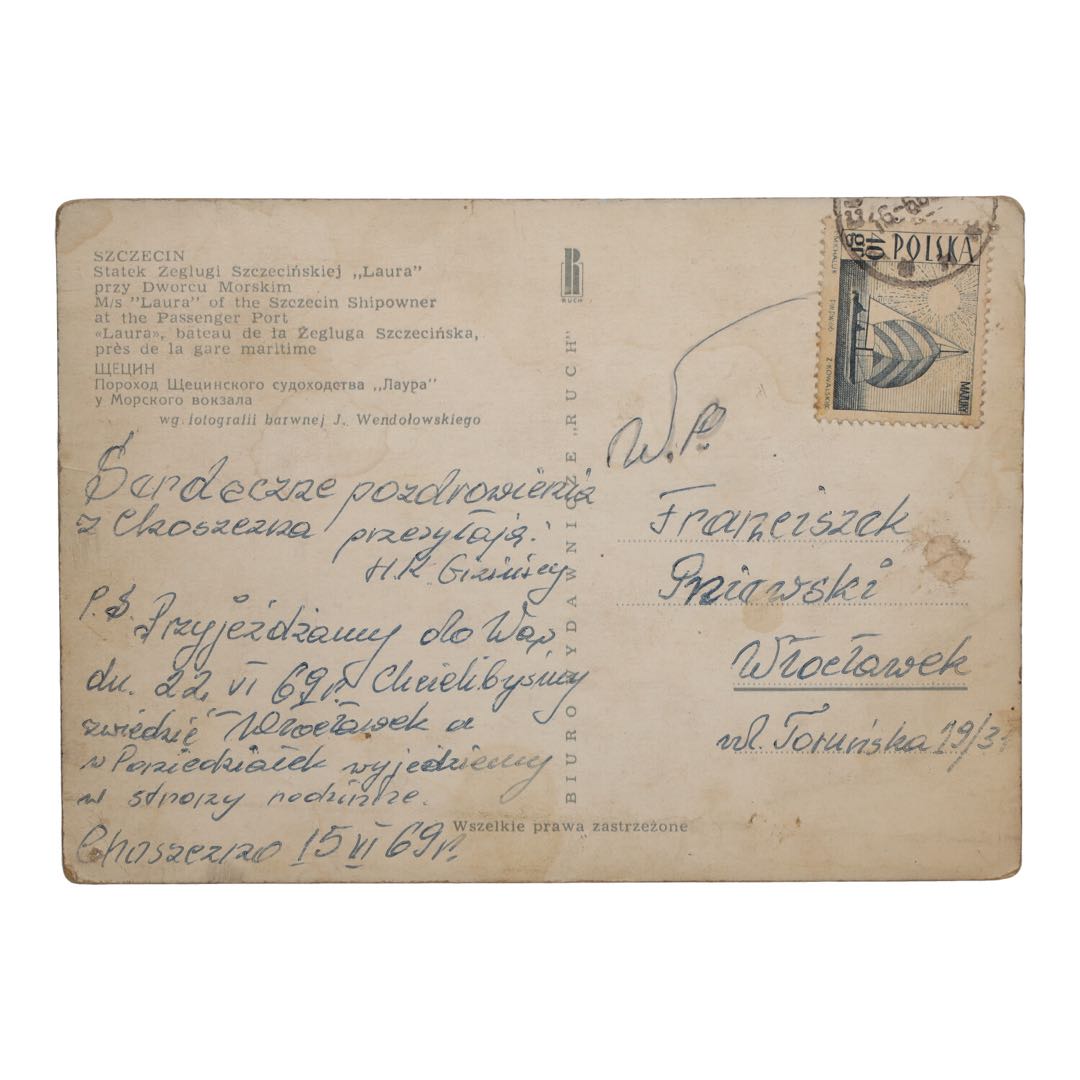 SZCZECIN
Statek Żeglugi Szczecińskiej „Laura"
przy Dworcu Morskim
M/s "Laura" of the Szczecin Shipowner
at the Passenger Port
«Laura», bateau de la Żegluga Szczecińska,
près de la gare maritime
ЩЕЦИН
Пороход Щецинского судоходства „Лаура"
у Морского вокзала
wg fotografii barwnej J. Wendołowskiego
Serdeczne pozdrowienia
z Choszczna przesyłają:
H.K.
P.S. Przyjeżdżamy do Was
dn. 22 VI 69 r. Chcielibyśmy
zwiedzić Włocławek a
w Poniedziałek wyjedziemy
w strony rodzinne.
Choszczno 15 VI 69 r.
BIURO WYDAWNICZE „RUCH"
RUCH
Wszelkie prawa zastrzeżone
POLSKA
40 gr
MAZURY
Z. KOWALSKI
W.P.
Franciszek
Pniewski
Włocławek
ul. Toruńska 19/31